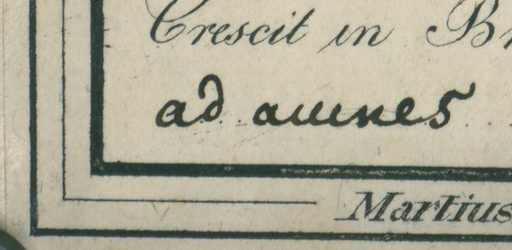 Crescit in Br
ad amnes
Martius